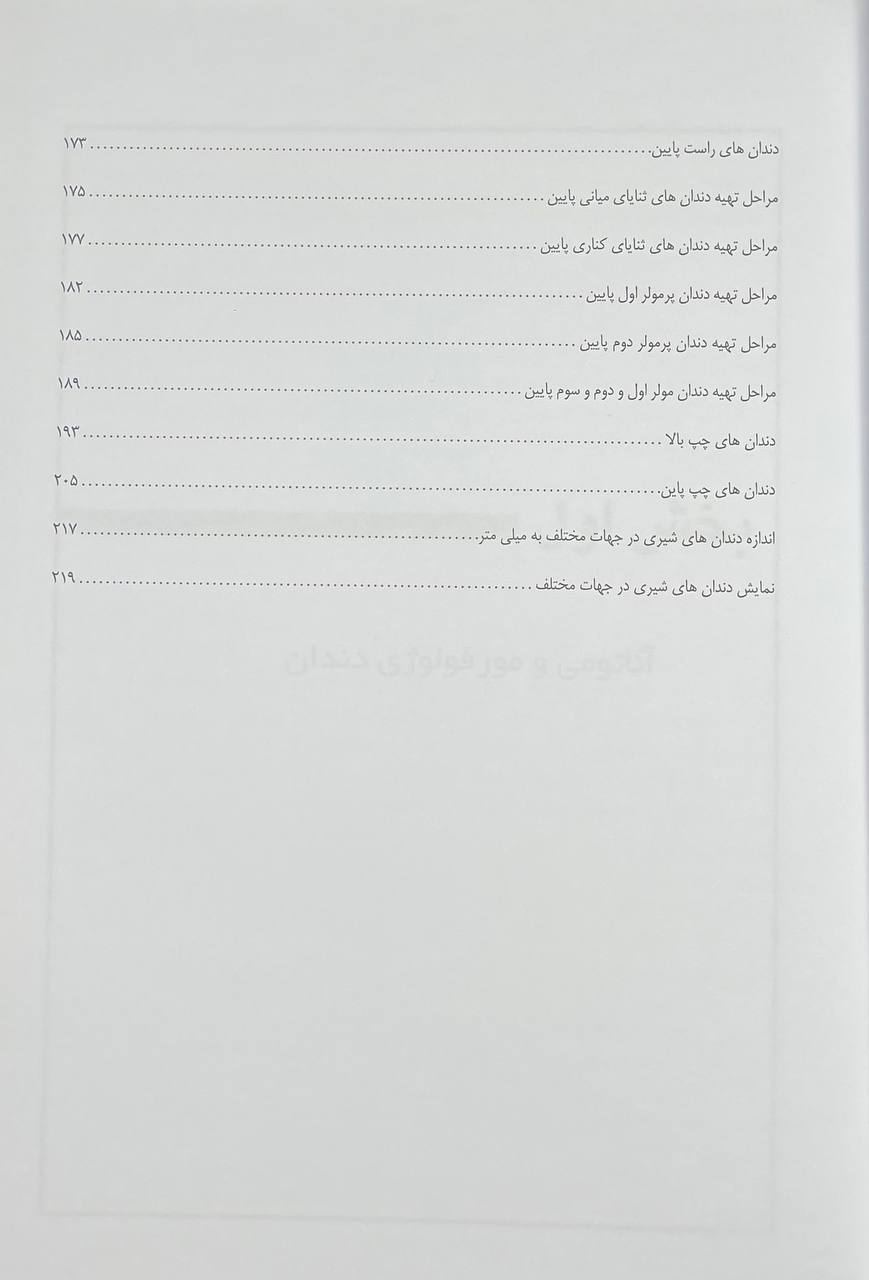 دندان های راست پایین................................................................................ ۱۷۳
مراحل تهیه دندان های ثنایای میانی پایین ................................................................ ۱۷۵
مراحل تهیه دندان های ثنایای کناری پایین ............................................................... ۱۷۷
مراحل تهیه دندان پرمولر اول پایین ...................................................................... ۱۸۲
مراحل تهیه دندان پرمولر دوم پایین ..................................................................... ۱۸۵
مراحل تهیه دندان مولر اول و دوم و سوم پایین ............................................................ ۱۸۹
دندان های چپ بالا ................................................................................ ۱۹۳
دندان های چپ پاین................................................................................ ۲۰۵
اندازه دندان های شیری در جهات مختلف به میلی متر...................................................... ۲۱۷
نمایش دندان های شیری در جهات مختلف .............................................................. ۲۱۹
آناتومی و مورفولوژی دندان